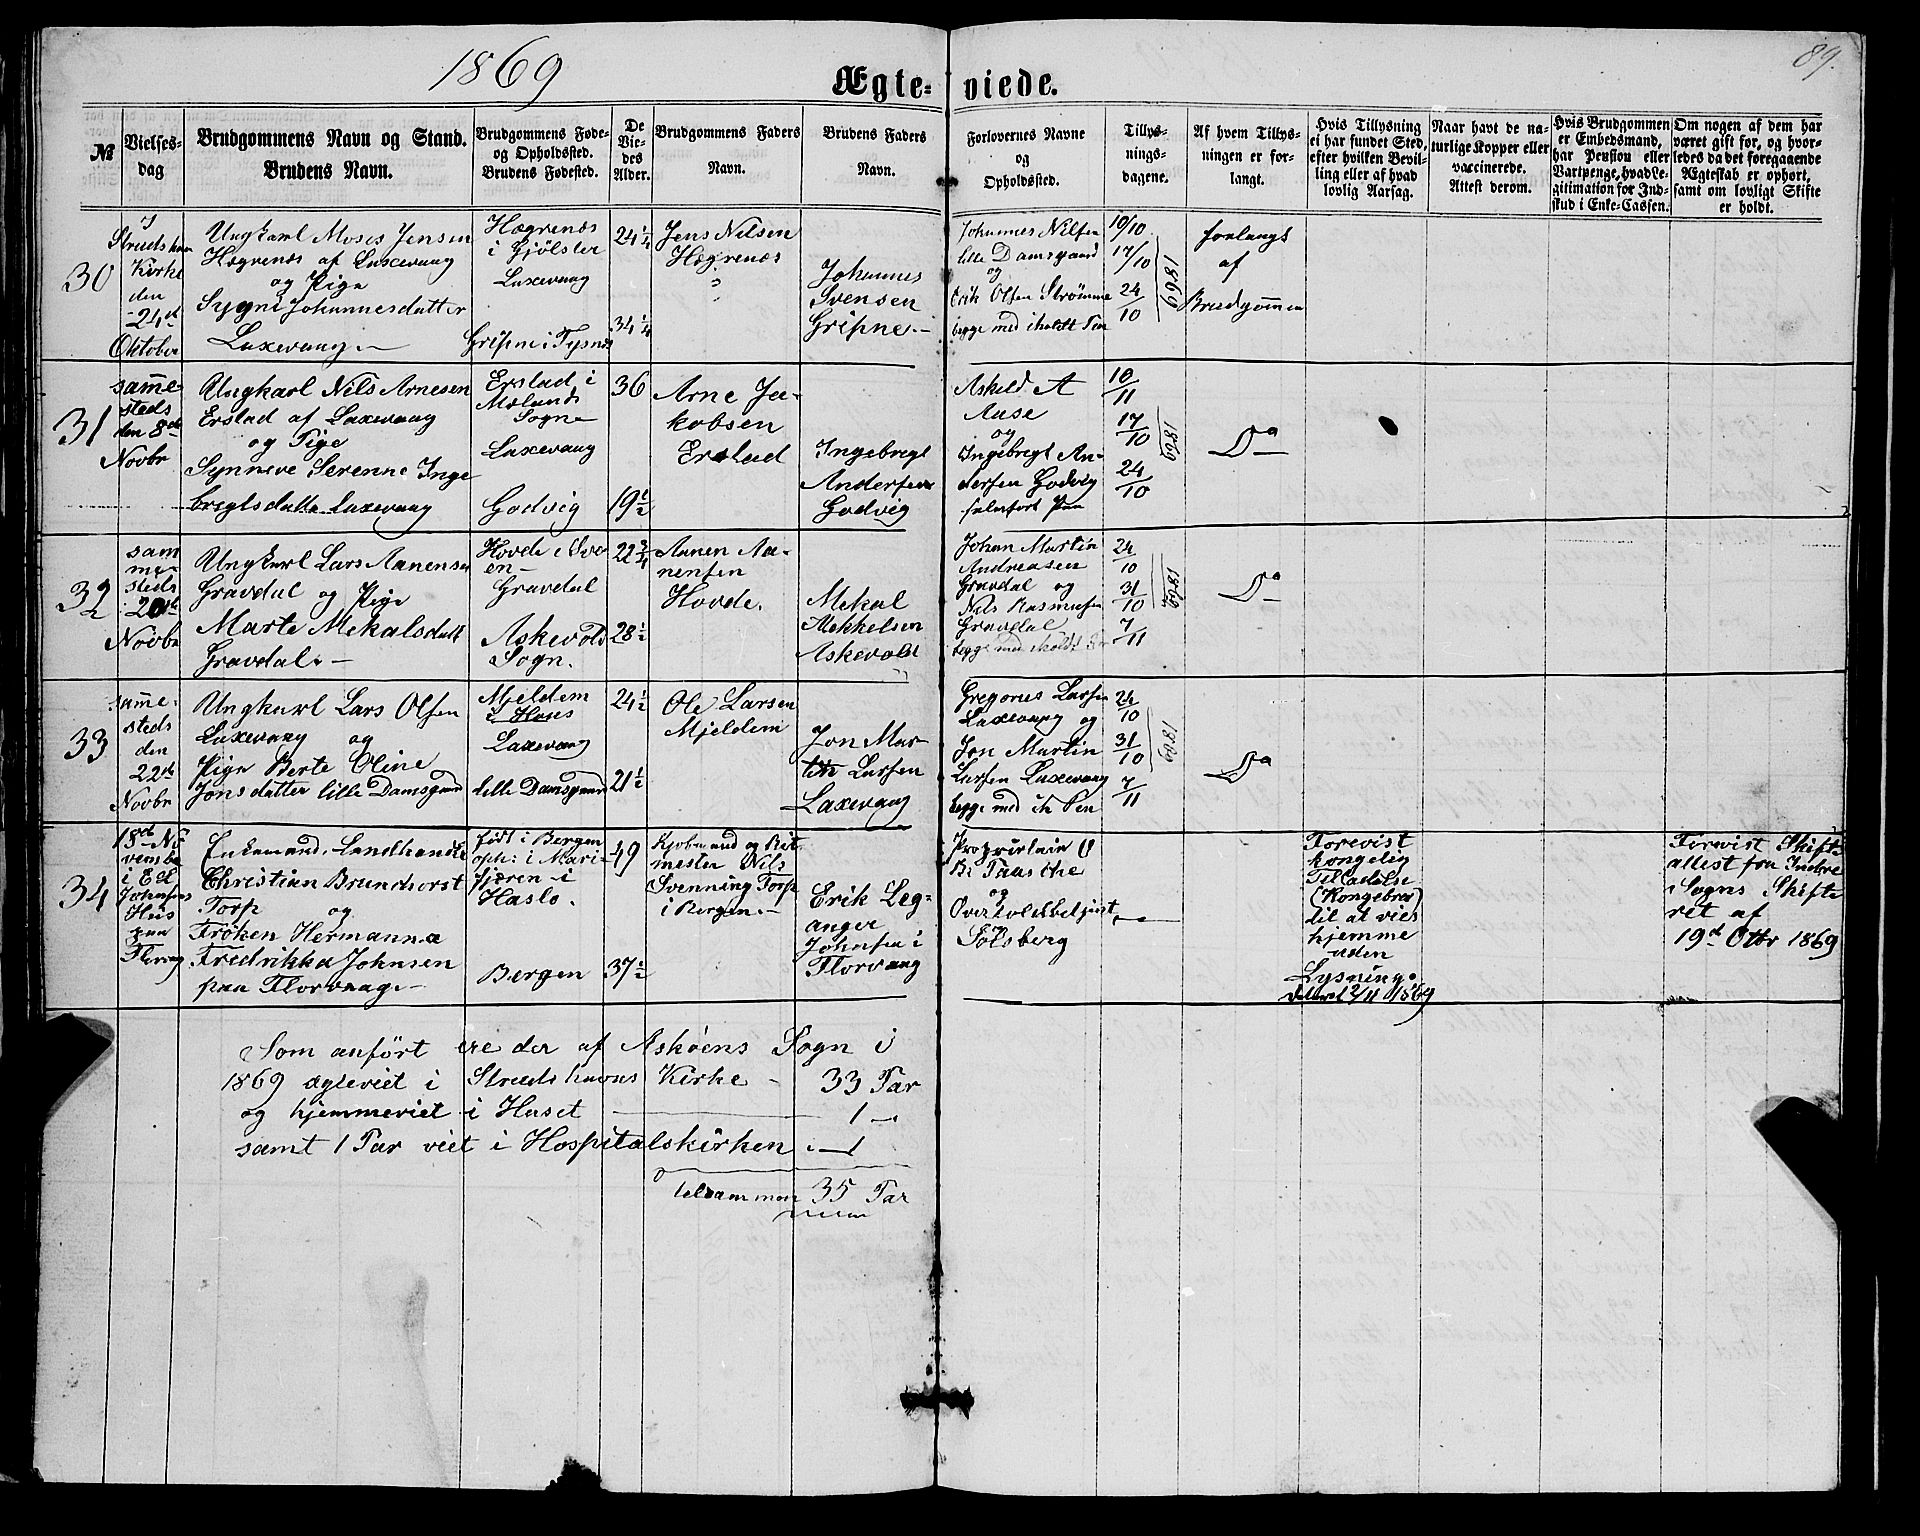 1869
89.
Ægte-viede.
№
Vielses-
dag
Brudgommens Navn og Stand.
Brudens Navn.
Brudgommens Føde-
og Opholdssted.
Brudens Fødested.
De
Vie-
des
Alder.
Brudgommens Faders
Navn.
Brudens Faders
Navn.
Forlovernes Navne
og
Opholdssted.
Tillys-
nings-
dagene.
Af hvem Tillys-
ningen er for-
langt.
Hvis Tillysning
ei har fundet Sted,
efter hvilken Bevil-
ling eller af hvad
lovlig Aarsag.
Naar havt de na-
turlige Kopper eller
vaccinerede.
Attest derom.
Hvis Brudgommen
er Embedsmand,
har Pension eller
Vartpenge, hvad Le-
gitimation for Ind-
skud i Enke-Cassen.
Om nogen af dem har
været gift før, og hvor-
ledes da det foregaaende
Ægteskab er ophørt,
samt om lovligt Skifte
er holdt.
30
I
Kirke
den
24de
Oktober
Ungkarl Moses Jensen
Hægrenæs af Laxevaag
og Pige
Sygni Johannesdatter
Laxevaag.-
Hægrenæs
i Gjölster
Laxevaag
Gripne i Tysnæs
24 1/4
34 1/4
Jens Nilsen
Hægrenæs
Johannes
Svensen
Gripne.-
Johannes Nilsen
lille Damsgaard
og
Erik Olsen Strømme
begge med iholdt Pen
10/10
17/10
24/10
1869
forlangt
af
Brudgommen
31
samme-
steds
den 8de
Novbr
Ungkarl Nils Arnesen
Erslad af Laxevaag
og Pige
Synneve Serenne Inge
bregtsdatter Laxevaag
Erslad i
Mælands
Sogn
Laxevaag
Godvig
36
19 1/2
Arne Ja-
kobsen
Erslad
Ingebregt
Andersen
Godvig
Askeld A
Aase
og
Ingebregt An-
dersen Godvig
10/11
17/10
24/10
1869
Do
32
sam
me-
steds
20de
Novbr
Ungkarl Lars Aanensen
Gravdal og Pige
Marte Mekalsdatt
Gravdal.-
Hovde i
Gravdal
Askevold
Sogn.
22 3/4
28 1/2
Aanen Aa-
nensen
Hovde.
Mekal
Mekkelsen
Askevold
Johan Martin
Andreasen
Gravdal og
Nils Rasmusen
Gravdal
begge med iholdt Pen
24/10
31/10
7/11
1869
Do
33
samme-
steds
den
22de
Novbr
Ungkarl Lars Olsen
Laxevaag og
Pige Berte Oline
Jonsdatter lille Damsgaard
Mjeldem
i Haus
Laxevaag
lille Damsgaard
24 1/2
21 1/2
Ole Larsen
Mjeldem
Jon Mar-
tin Larsen
Laxevaag
Gregorius Larsen
Laxevaag og
Jon Martin
Larsen Laxevaag
begge med ih Pen
24/10
31/10
7/11
1869
Do
34
18de No
vember
i
Johnsens
Hus
paa
Florvaag
Enkemand, Landhandle
Christian Brunchorst
Torp og
Fröken Hermanna
Fredrikka Johnsen
paa Florvaag.-
født i Bergen
oph: i Mari-
fjæren i
Haslo.
Bergen
49
37 1/2
Kjøbmand og Rit-
mester Nils
Svenning Torp
i Bergen.-
Erik Leg-
anger
Johnsen i
Florvaag
og
Sölsberg
Forevist
kongelig
Tilladelse
(Kongebrev)
til at vies
hjemme
uden
Lysning.
dateret 2/11 1869
Forevist Skifte
attest fra Indre
Sogns Skifte
ret af
19de Otbr 1869
Som anført ere der af Askøens Sogn i
1869 ægteviet i Strudshavns Kirke - 33 Par
og hjemmeviet i Huset 1 -
samt 1 Par viet i Hospitalskirken . - 1
tilsammen 35 Par